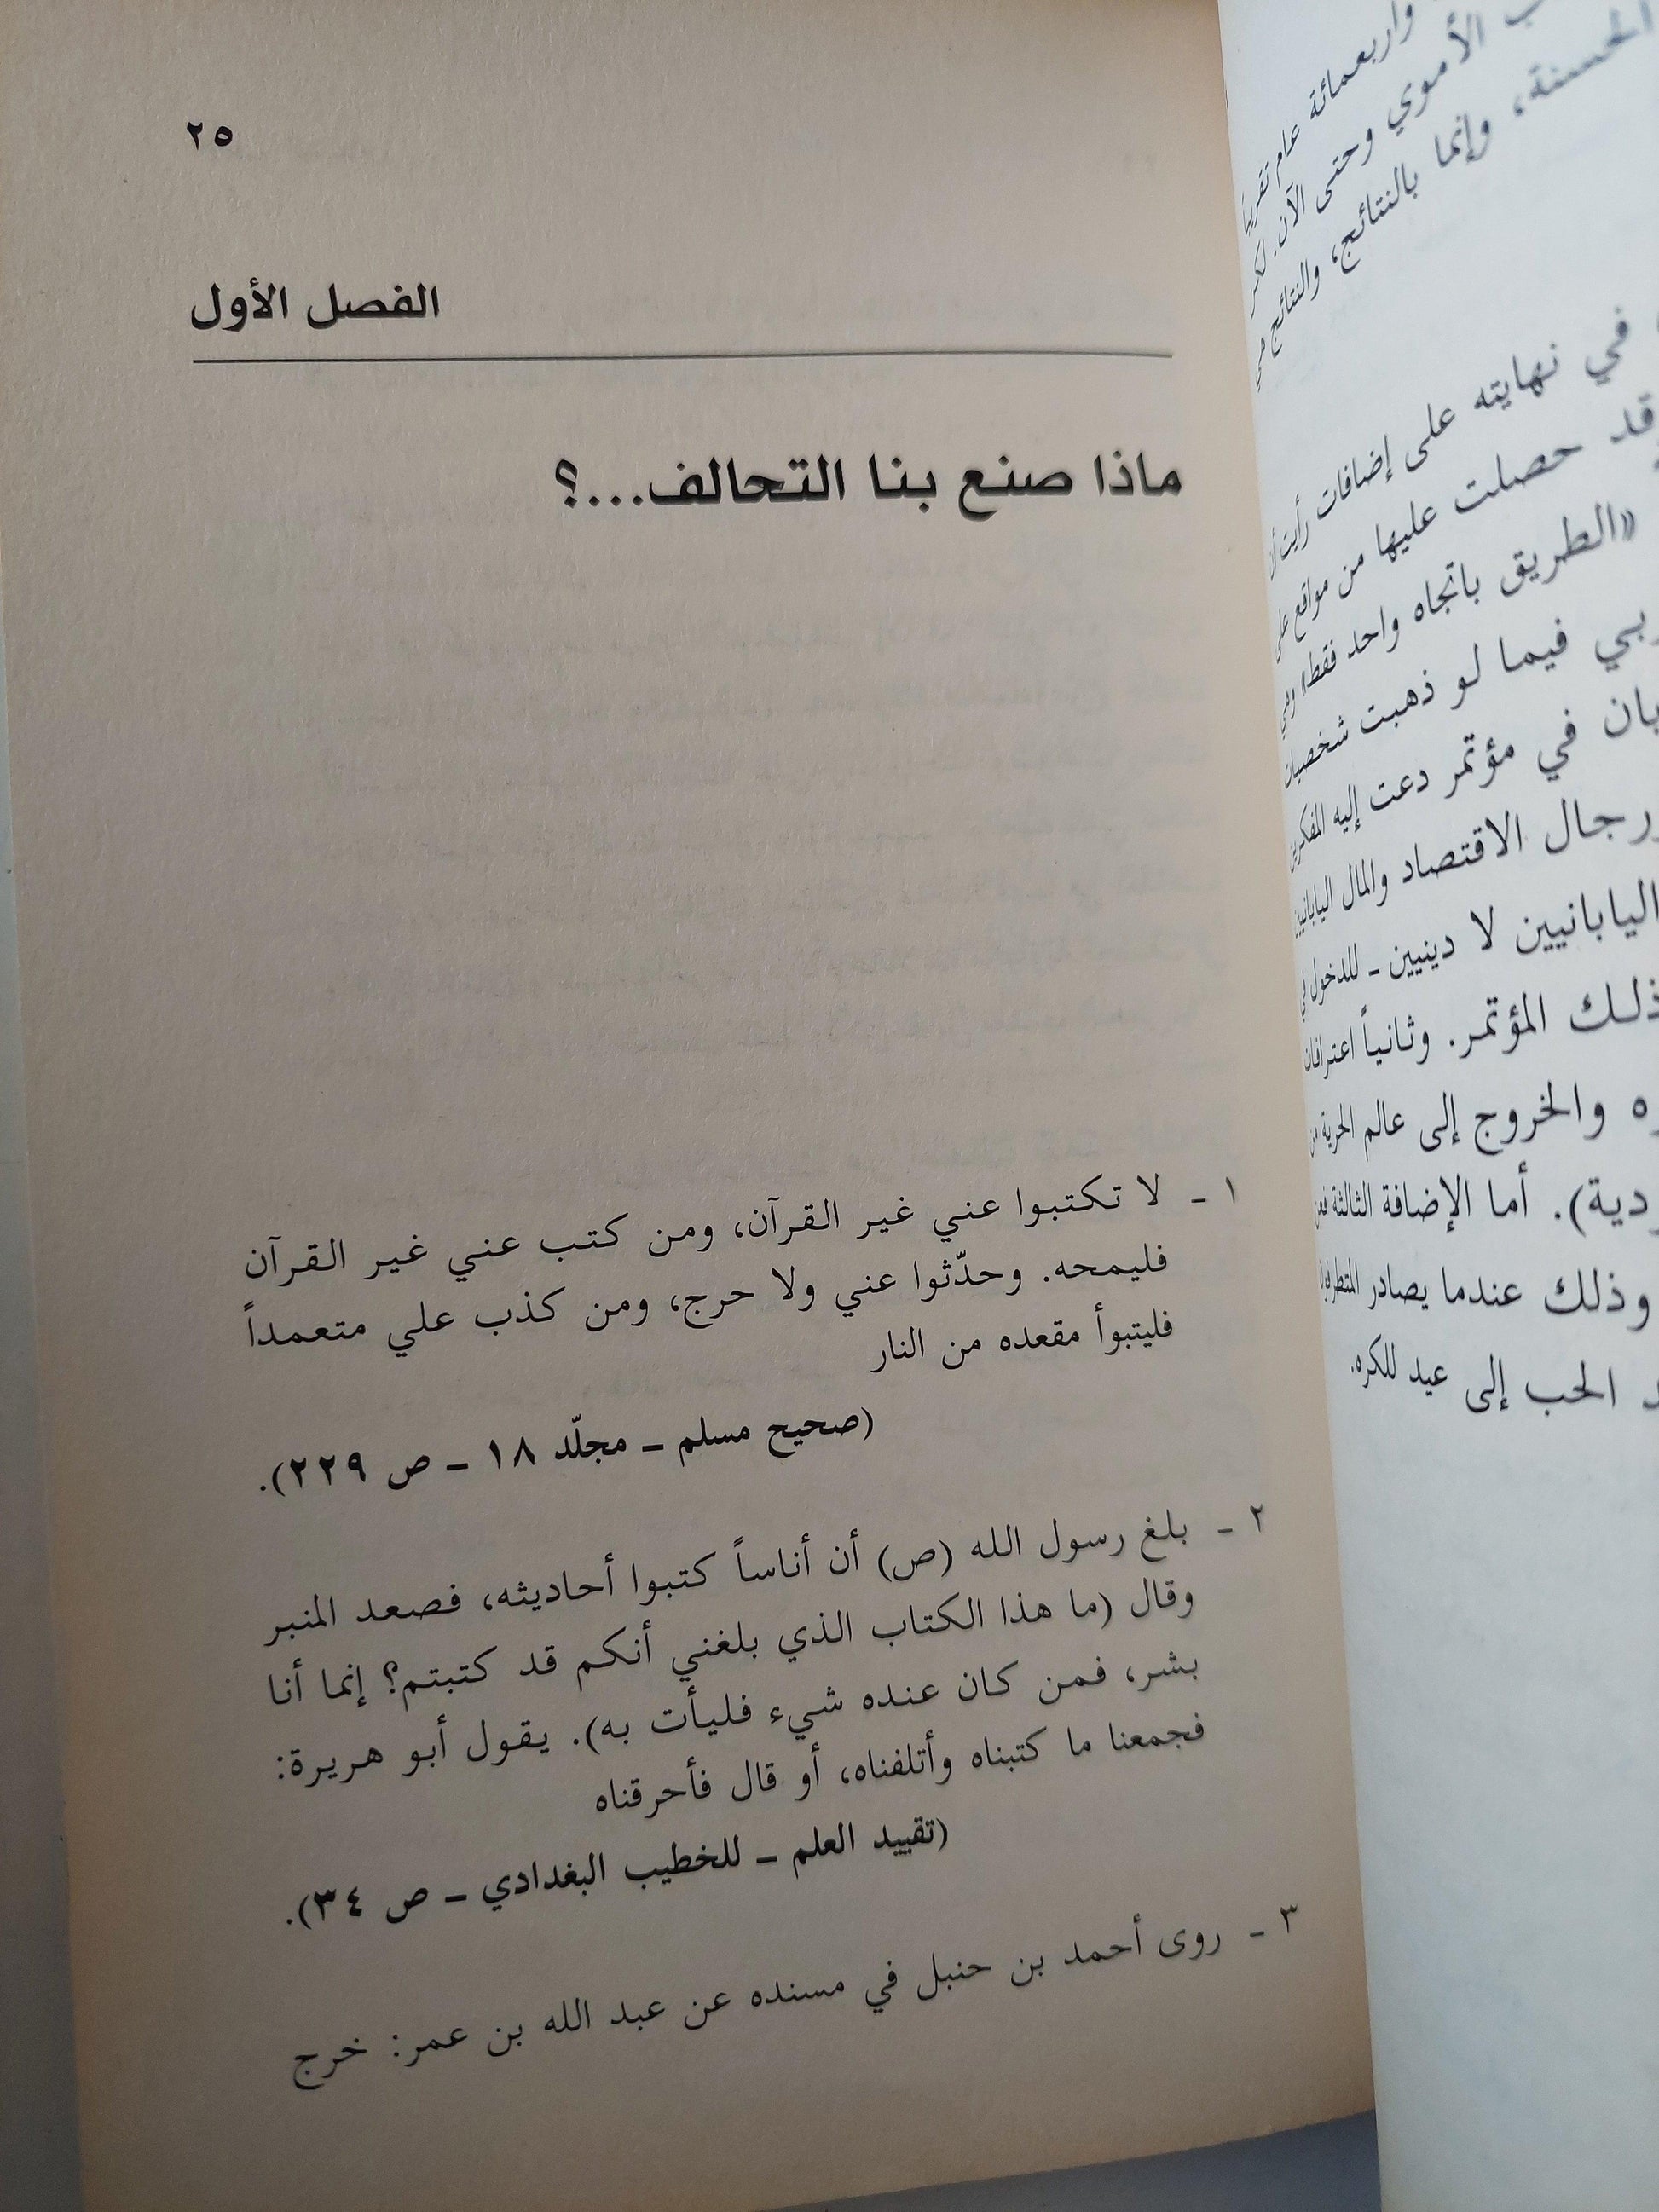 واربعمائة عام تقريباً
الأموي وحتى الآن. لكن
الحسنة، وإنما بالنتائج، والنتائج هي
في نهايته على إضافات رأيت
حصلت عليها من مواقع
«الطريق باتجاه واحد فقط» وهي
فيما لو ذهبت شخصيات
في مؤتمر دعت إليه المفكرين
ورجال الاقتصاد والمال اليابانيين
اليابانيين لا دينيين - للدخول في
ذلك المؤتمر. وثانياً اعترافات
والخروج إلى عالم الحرية من
أما الإضافة الثالثة فمن
وذلك عندما يصادر المتطرفون
الحب إلى عيد للكره.
٢٥
الفصل الأول
ماذا صنع بنا التحالف...؟
١ - لا تكتبوا عني غير القرآن، ومن كتب عني غير القرآن
فليمحه. وحدّثوا عني ولا حرج، ومن كذب علي متعمداً
فليتبوأ مقعده من النار
(صحيح مسلم - مجلّد ١٨ - ص ٢٢٩).
٢ - بلغ رسول الله (ص) أن أناساً كتبوا أحاديثه، فصعد المنبر
وقال (ما هذا الكتاب الذي بلغني أنكم قد كتبتم؟ إنما أنا
بشر، فمن كان عنده شيء فليأت به). يقول أبو هريرة:
فجمعنا ما كتبناه وأتلفناه، أو قال فأحرقناه
(تقييد العلم - للخطيب البغدادي - ص ٣٤).
٣ - روى أحمد بن حنبل في مسنده عن عبد الله بن عمر: خرج